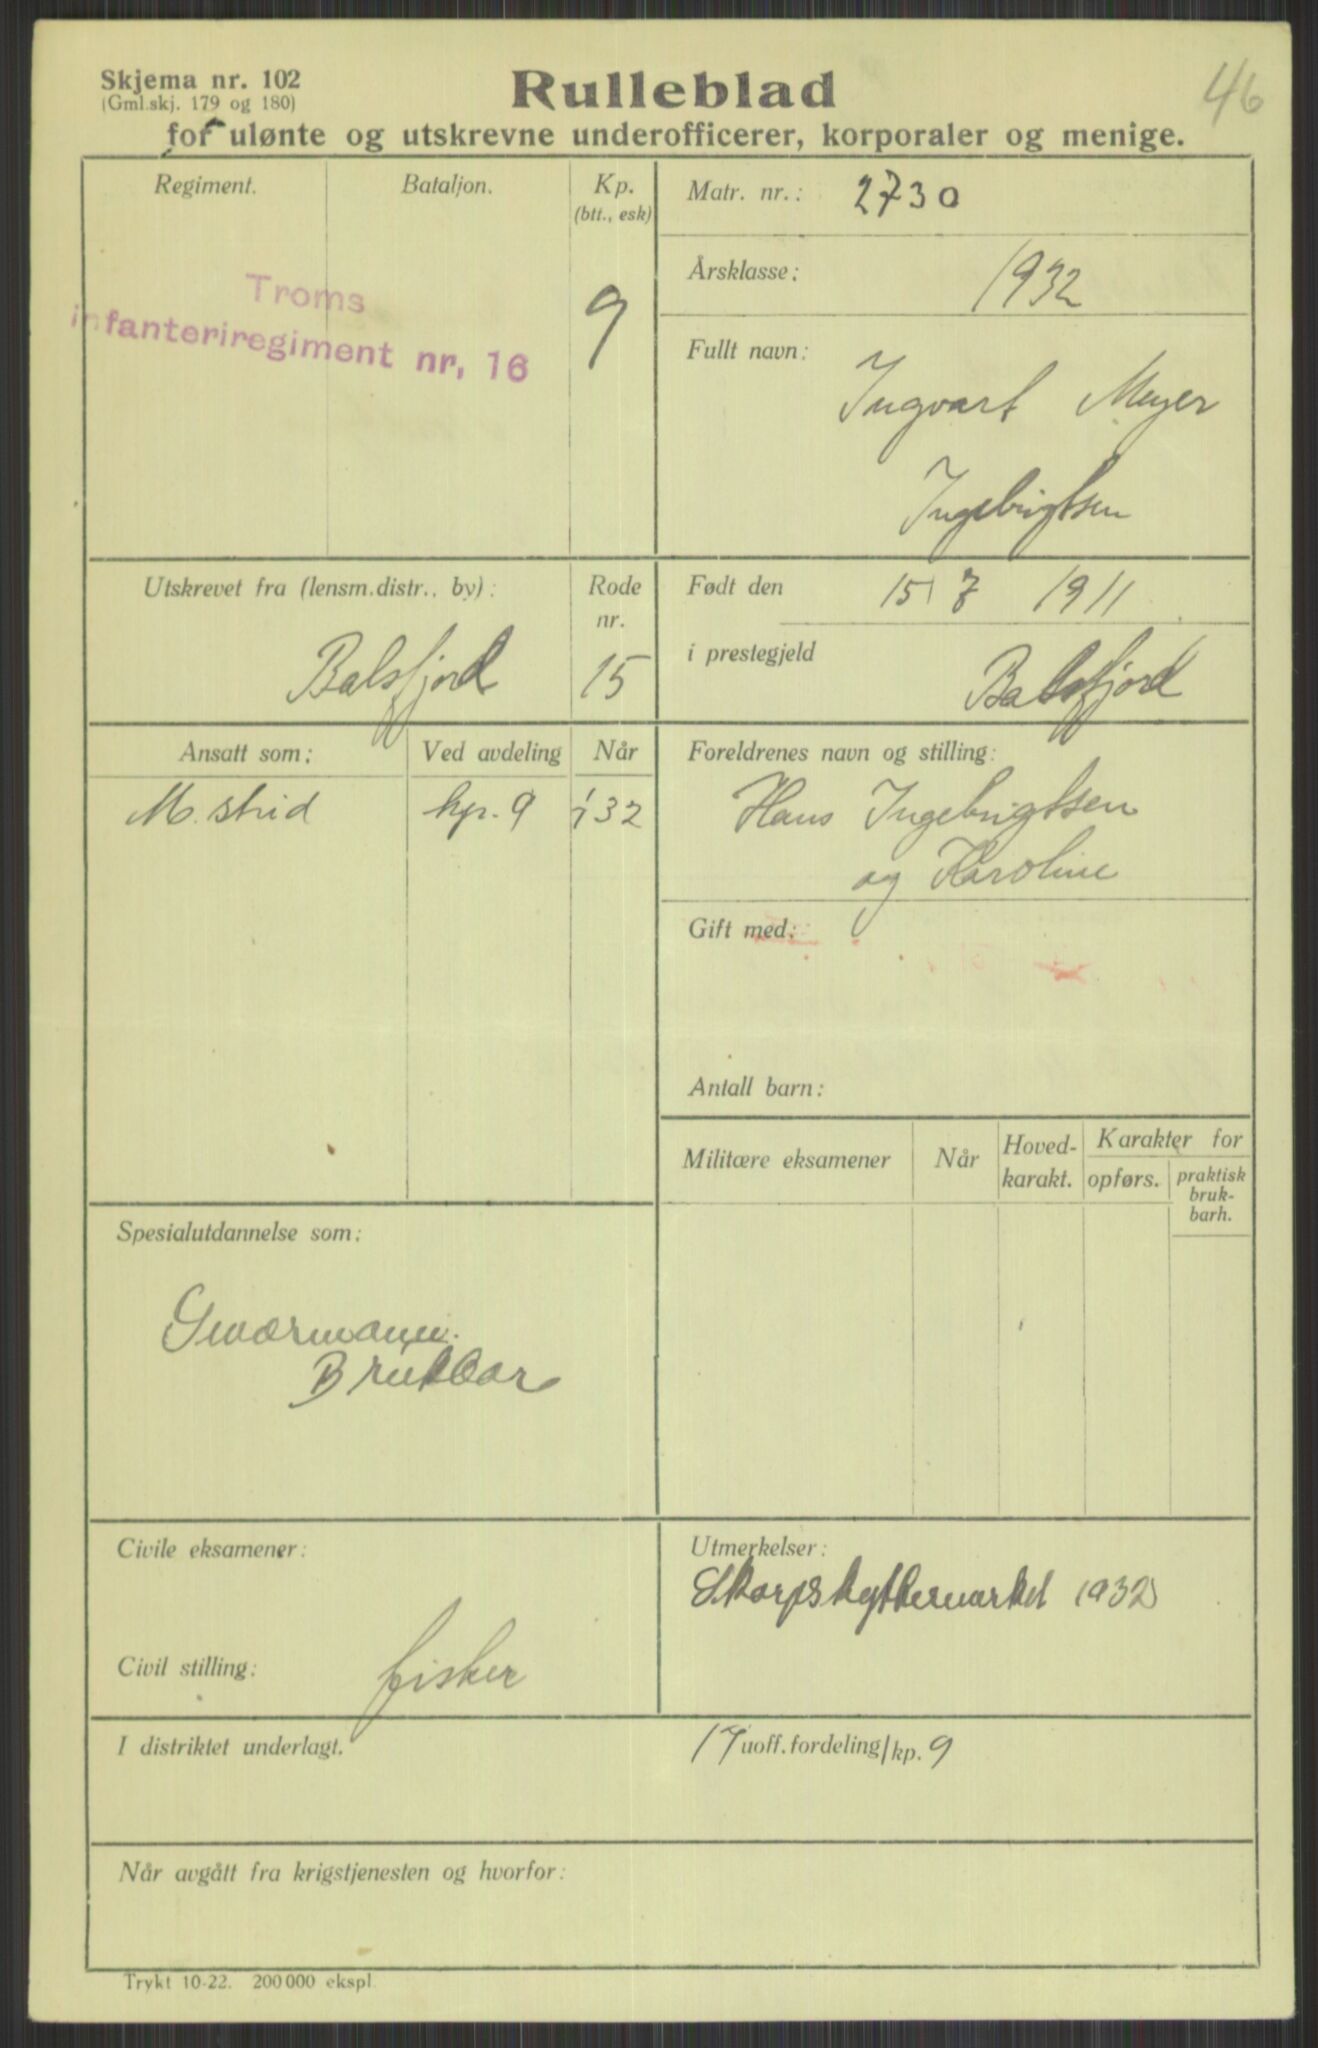 Skjema nr. 102
(Gml.skj. 179 og 180)
Rulleblad
46
for ulønte og utskrevne underofficerer, korporaler og menige.
Regiment.
Bataljon.
Kp.
(btt., esk)
Troms
infanteriregiment nr, 16
9
Matr. nr.: 2730
Årsklasse: 1932
Fullt navn:
Ingvart Meyer
Ingebrigtsen
Utskrevet fra (lensm.distr., by):
Balsfjord
Rode
nr.
15
Født den 15/7 1911
i prestegjeld Balsfjord
Ansatt som:
Ved avdeling
Når
M. strid
kp. 9
Foreldrenes navn og stilling:
Hans Ingebrigtsen
og Karoline
Gift med:
Antall barn:
Militære eksamener
Når
Hoved-
karakt.
Karakter for
opførs.
praktisk
bruk-
barh.
Spesialutdannelse som:
Brukbar
Civile eksamener:
Civil stilling: fisker
Utmerkelser:
Skarpskyttermerket 1932
I distriktet underlagt.
17 uoff. fordeling/kp. 9
Når avgått fra krigstjenesten og hvorfor:
Trykt 10-22. 200 000 ekspl.